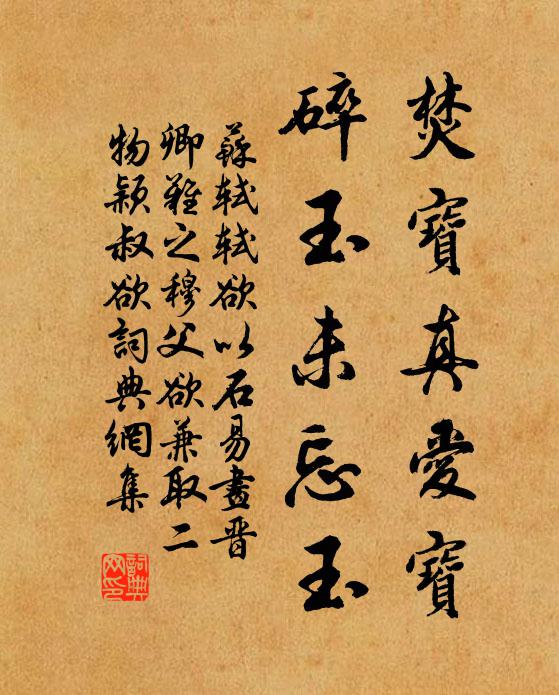 焚寶真愛寶
碎玉未忘玉
蘇軾軾欲以石易畫晋
卿難之穆父欲兼取二
物颖叔欲詞典網集
詞典
网印